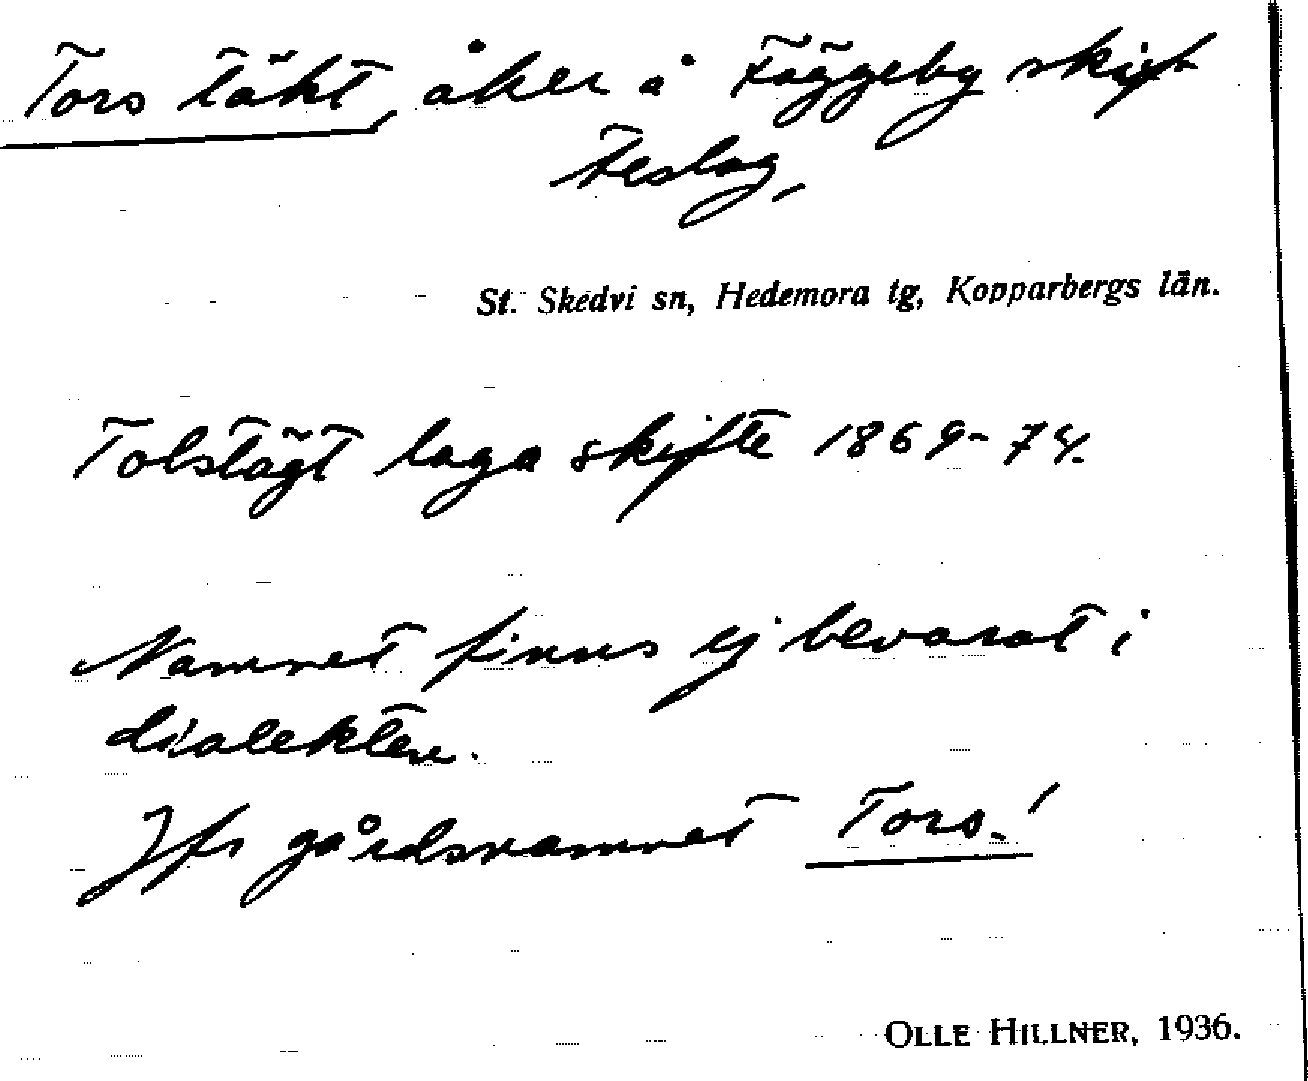 Tors täkt, åker å Fäggeby skif-
teslag,
St. Skedvi sn, Hedemora tg, Kopparbergs län.
Tolstägt laga skifte 1869-74.
Namnet finns ej bevarat i
dialekten.
Jfr gårdsnamnet Tors!
OLLE HILLNER, 1936.